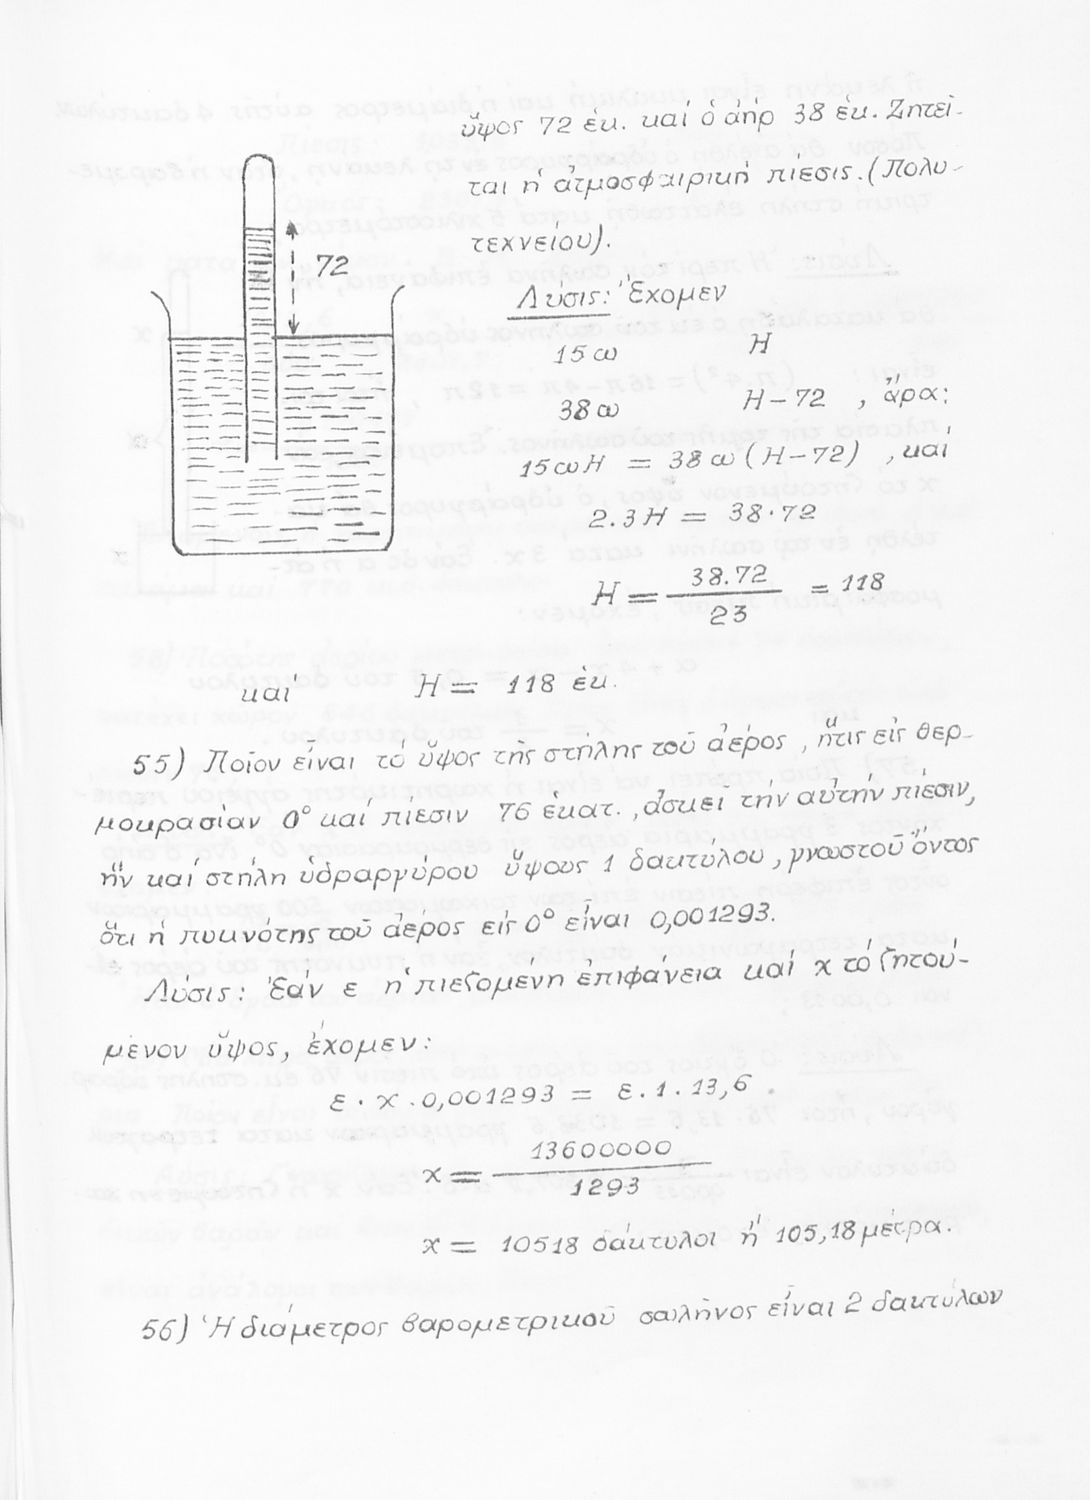 ὕψος 72 ἑκ. καί ὁ ἀήρ 38 ἑκ. Ζητεῖ-
ται ἡ ἀτμοσφαιρική πίεσις. (Πολυ-
τεχνείου).
72
Λύσις: Ἔχομεν
15ω H
38ω H-72 , ἄρα:
15ωH = 38ω(H-72) , καί
2.3H = 38·72
H = 38.72 / 23 = 118
καί H = 118 ἑκ.
55) Ποῖον εἶναι τό ὕψος τῆς στήλης τοῦ ἀέρος, ἥτις εἰς θερ-
μοκρασίαν 0° καί πίεσιν 76 ἑκατ., ἀσκεῖ τήν αὐτήν πίεσιν,
ἥν καί στήλη ὑδραργύρου ὕψους 1 δακτύλου, γνωστοῦ ὄντος
ὅτι ἡ πυκνότης τοῦ ἀέρος εἰς 0° εἶναι 0,001293.
Λύσις: Ἐάν ε ἡ πιεζομένη ἐπιφάνεια καί x τό ζητού-
μενον ὕψος, ἔχομεν:
ε·x·0,001293 = ε.1.13,6.
x = 13600000 / 1293
x = 10518 δάκτυλοι ἤ 105,18 μέτρα.
56) Ἡ διάμετρος βαρομετρικοῦ σωλῆνος εἶναι 2 δακτύλων